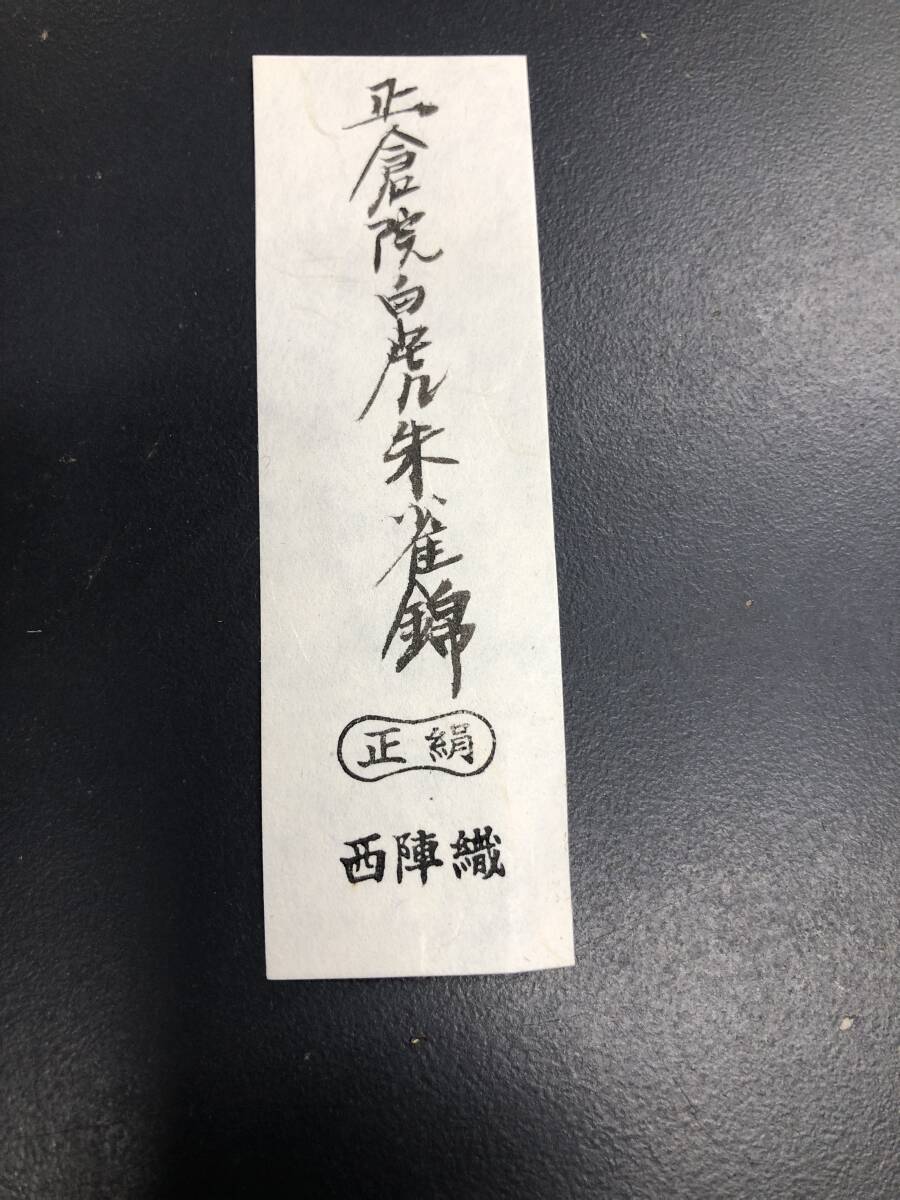 正倉院白虎朱雀錦
正絹
西陣織